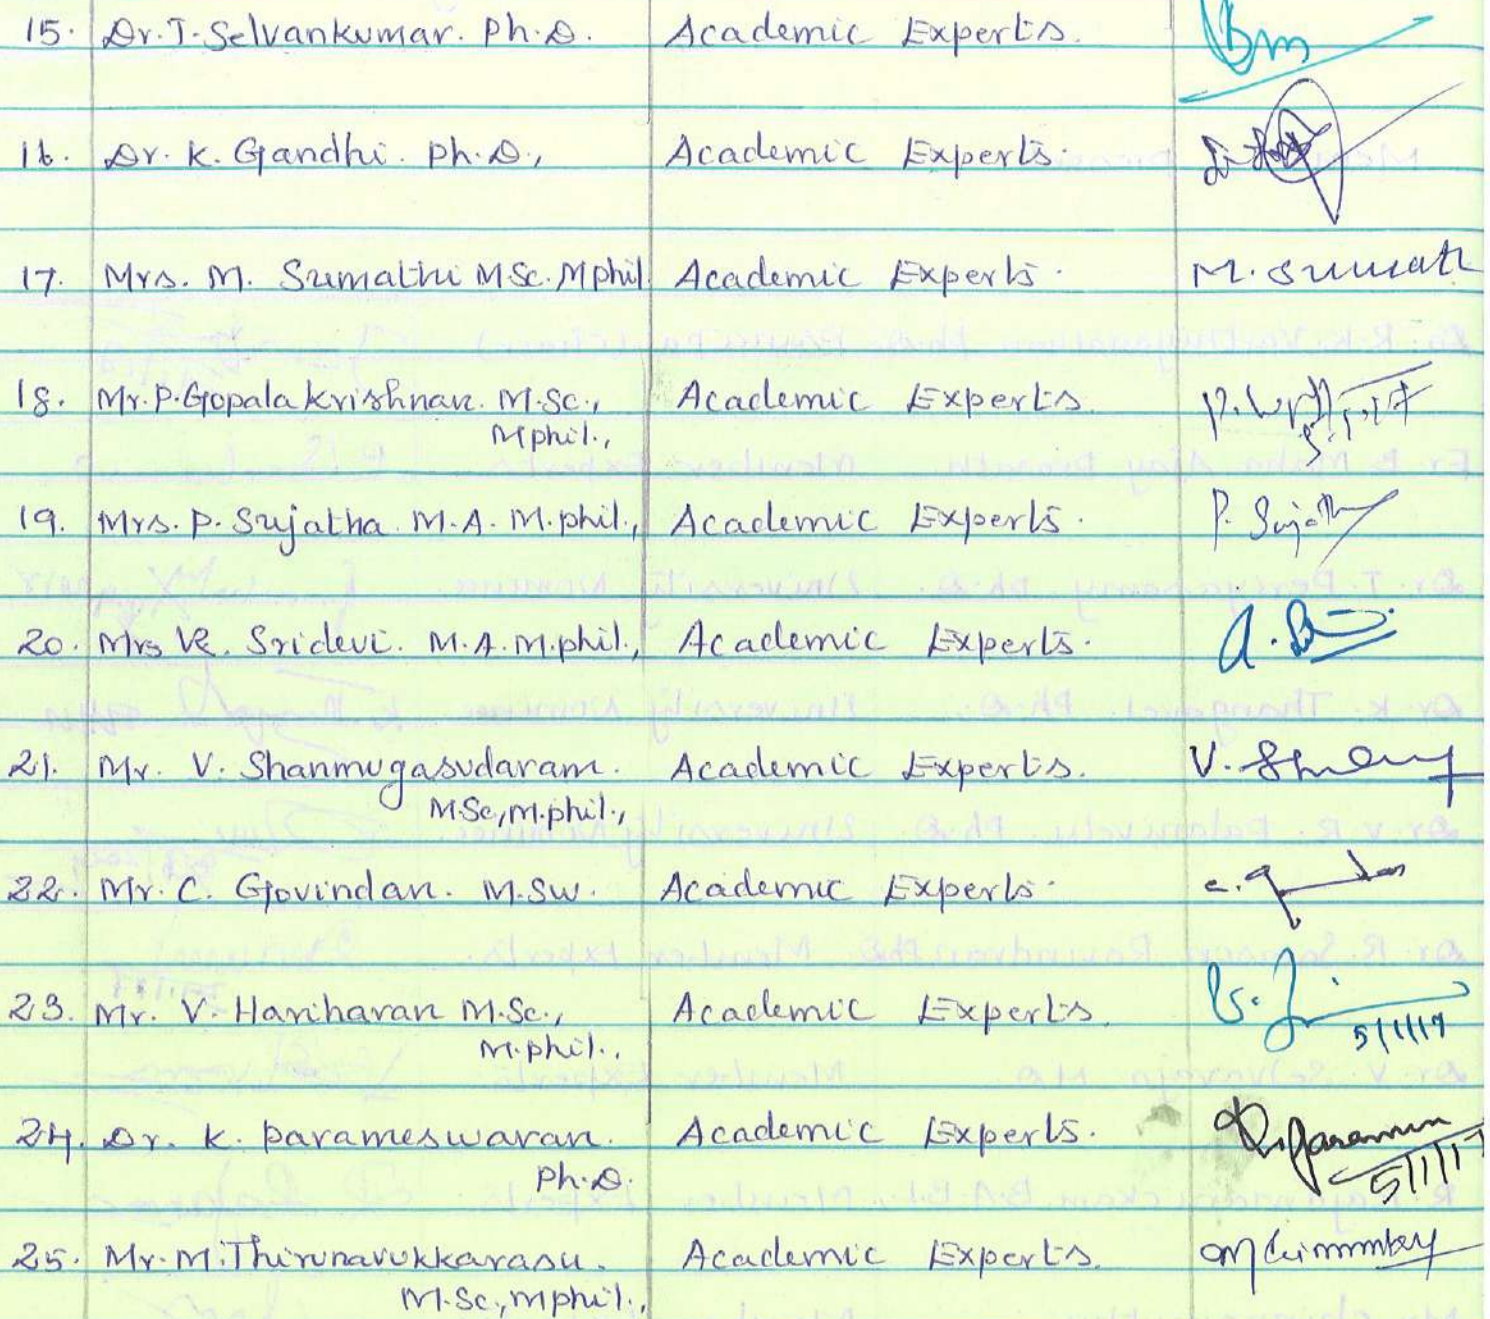 15. Dr. T. Selvankumar. Ph.D. Academic Experts.
16. Dr. K. Gandhi. Ph.D., Academic Experts.
17. Mrs. M. Sumathi M.Sc. Mphil Academic Experts. M. Sumath
18. Mr. P. Gopalakrishnan. M.Sc., Academic Experts.
Mphil.,
19. Mrs. P. Sujatha. M.A. M.phil., Academic Experts. P. Sujatha
20. Mrs Sridevi. M.A. M.phil., Academic Experts.
21. Mr. V. Shanmugasudaram. Academic Experts.
M.Sc, M.phil.,
22. Mr. C. Govindan. M.SW. Academic Experts.
23. Mr. V. Hariharan M.Sc., Academic Experts.
M.phil., 5/1/17
24. Dr. K. Parameswaran. Academic Experts.
Ph.D. 5/1/17
25. Mr. M. Thirunavukkarasu. Academic Experts.
M.Sc., Mphil.,